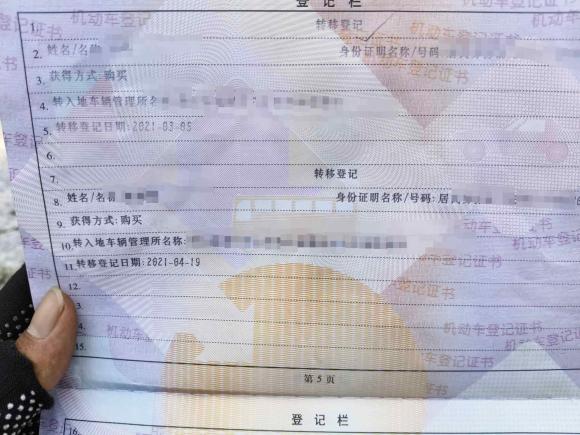 登记栏
1. 转移登记
2. 姓名/名称 身份证明名称/号码
3. 获得方式:购买
4. 转入地车辆管理所名
5. 转移登记日期:2021-03-05
6.
7. 转移登记
8. 姓名/名称 身份证明名称/号码:居民
9. 获得方式:购买
10. 转入地车辆管理所名称:
11. 转移登记日期:2021-04-19
12.
3.
4.
15.
第5页
登记栏
16.
机动车登记证书
机动车登记证书
机动车登记证书
机动车登记证书